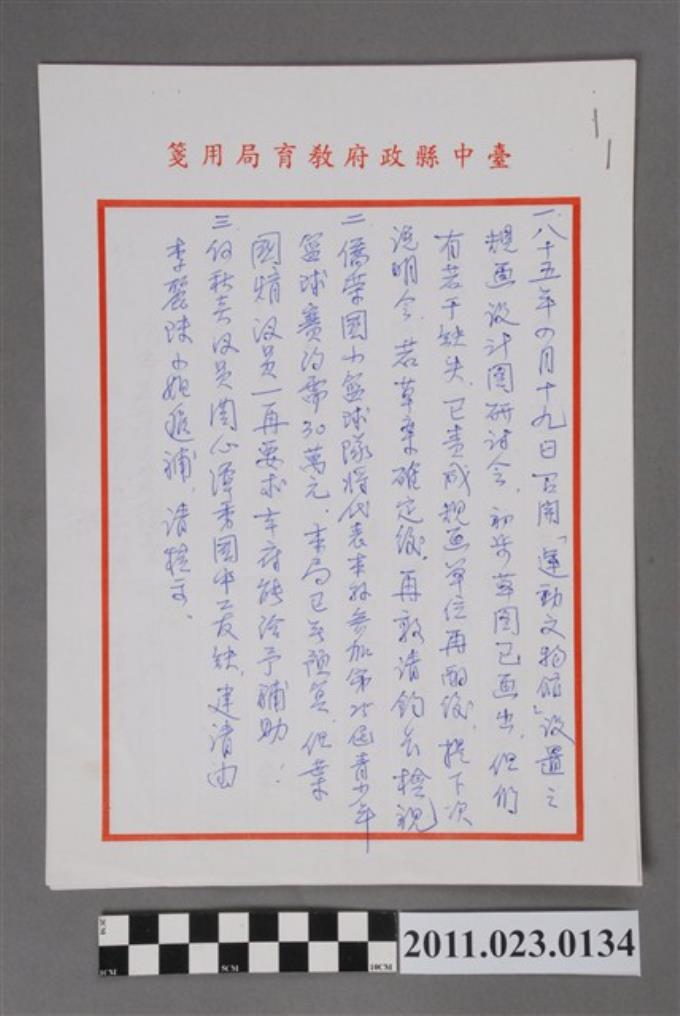 臺中縣政府教育局用箋
一、八十五年四月十九日召開「運動文物館」設置之
規画設計圖研討会，初步草图已画出，但仍
有若干缺失，已責成規画單位再酌後，提下次
說明会，若草案確定後，再敦請鈞長檢視
二、僑榮國小籃球隊將代表本縣參加第25屆青少年
籃球賽約需30萬元，本局已無預算，但葉
國 議員一再要求本府能給予補助。
三、何 議員関心潭秀國中工友缺，建請由
李麗 小姐遞補，請核示、
2011.023.0134
5CM
10CM